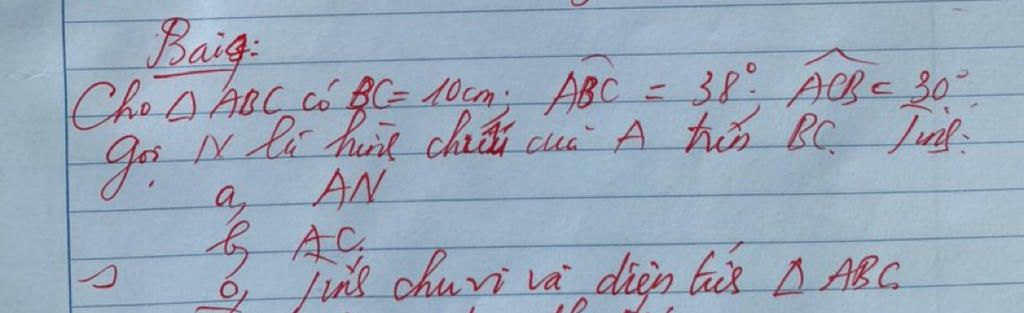 Bài 9:
Cho Δ ABC có BC = 10cm; ABC = 38°; ACB = 30°
gọi N là hình chiếu của A trên BC. Tính:
a, AN
b, AC.
c, Tính chu vi và diện tích Δ ABC.